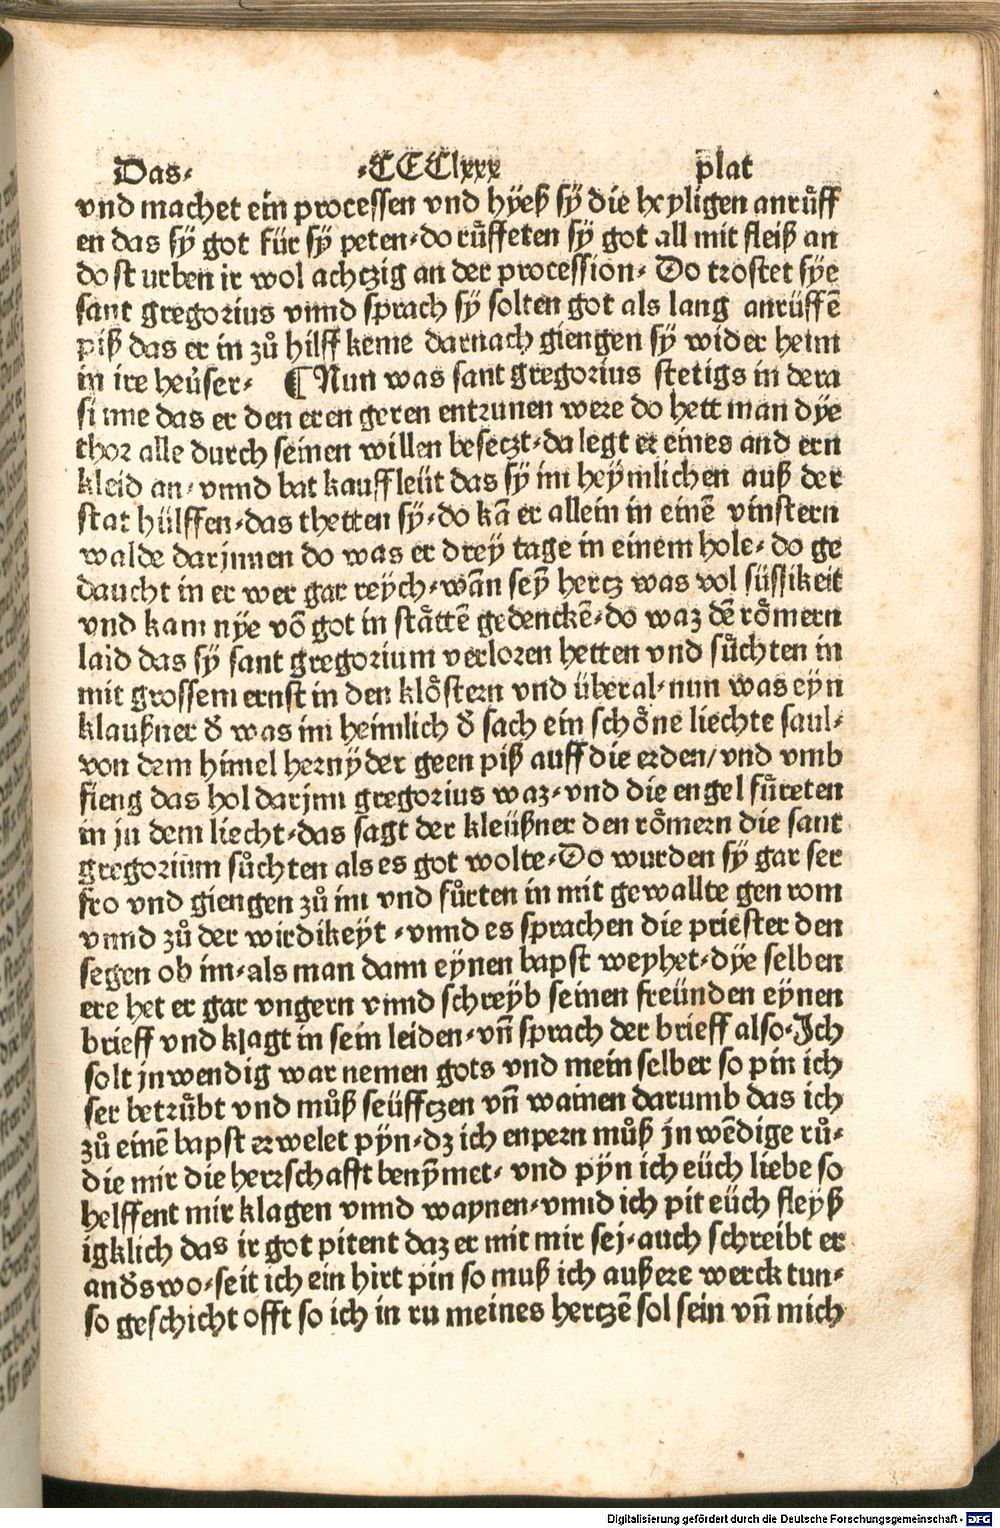 Das⸗ ⸗CCClxxx plat
vnd machet ein processen vnd hÿeß sÿ die heyligen anrůff
en das sÿ got für sÿ peten⸗do růffeten sÿ got all mit fleiß an
do st urben ir wol achtzig an der procession⸗ Do trostet sÿe
sant gregorius vnnd sprach sÿ solten got als lang anrüffē
piß das er in zů hilff keme darnach giengen sÿ wider heim
in ire heüser⸗ ¶ Nun was sant gregorius stetigs in dera
sinne das er den eren geren entrunen were do hett man dÿe
thor alle durch seinen willen besetzt⸗da legt er eines and ern
kleid an⸗vnnd bat kauffleüt das sÿ im heÿmlichen auß der
stat hülffen⸗das thetten sÿ⸗do kā er allein in einē vinstern
walde darjnnen do was er dreÿ tage in einem hole⸗ do ge
daucht in er wer gar reÿch⸗wān seÿ hertz was vol süssikeit
vnd kam nÿe vō got in stättē gedenckē⸗do waz dē römern
laid das sÿ sant gregorium verloren hetten vnd sůchten in
mit grossem ernst in den klöstern vnd überal⸗nun was eyn
klaußner d̄ was im heimlich d̄ sach ein schöne liechte saul⸗
von dem himel hernÿder geen piß auff die erden/vnd vmb
fieng das hol darjnn gregorius waz⸗vnd die engel fůreten
in ju dem liecht⸗das sagt der kleüßner den römern die sant
gregorium sůchten als es got wolte⸗Do wurden sÿ gar ser
fro vnd giengen zů im vnd fůrten in mit gewallte gen rom
vnnd zů der wirdikeyt ⸗vnnd es sprachen die priester den
segen ob im⸗als man dann eÿnen bapst weyhet⸗dÿe selben
ere het er gar vngern vnnd schreÿb seinen freünden eÿnen
brieff vnd klagt in sein leiden⸗vn̄ sprach der brieff also⸗Ich
solt jnwendig war nemen gots vnd mein selber so pin ich
ser betrůbt vnd můß seüfftzen vn̄ wainen darumb das ich
zů einē bapst erwelet pÿn⸗dz ich enpern můß jnwēdige rů⸗
die mir die herrschafft benÿmet⸗ vnd pÿn ich eüch liebe so
helffent mir klagen vnnd waynen⸗vnnd ich pit eüch fleyß
igklich das ir got pitent daz er mit mir sej⸗auch schreibt er
and̄swo⸗seit ich ein hirt pin so muß ich außere werck tun⸗
so geschicht offt so ich in ru meines hertzē sol sein vn̄ mich
Digitalisierung gefördert durch die Deutsche Forschungsgemeinschaft - DFG